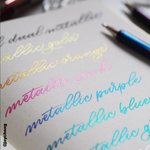 dual metallic
metallic gold
metallic orange
metallic pink
metallic purple
metallic blue
metallic